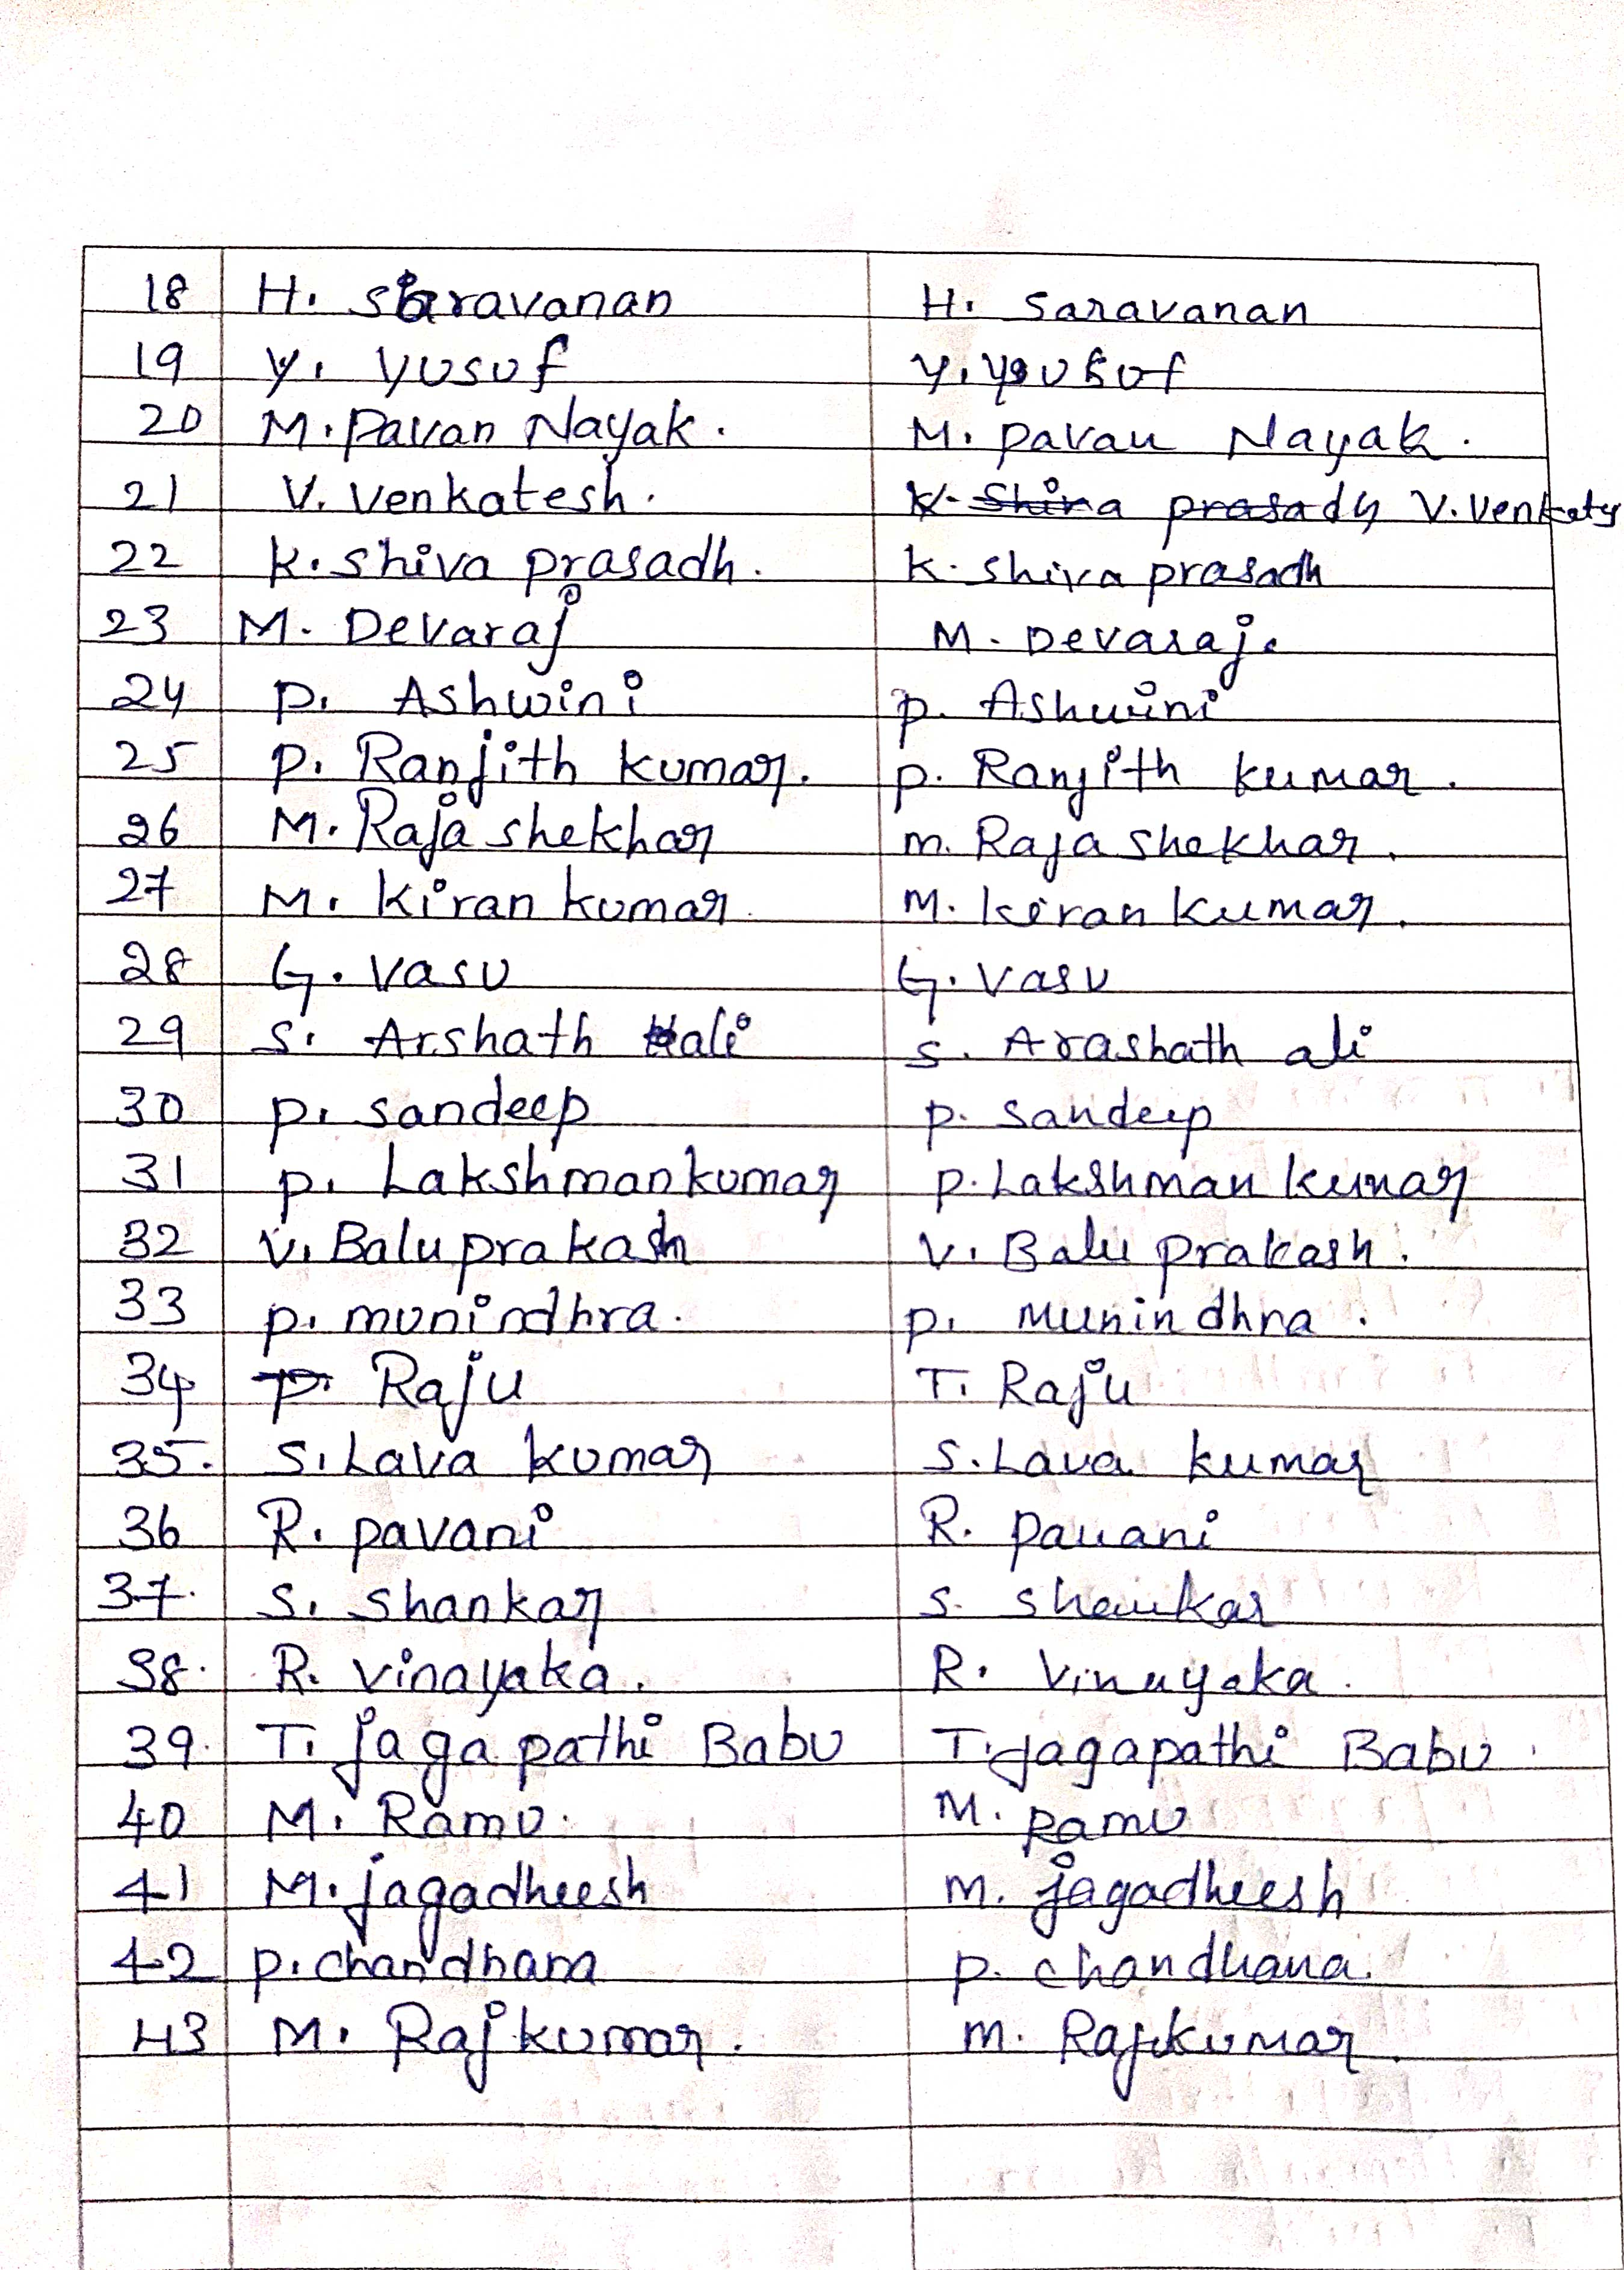 18 H. Saravanan H. Saravanan
19 Y. Yusuf Y. Yousof
20 M. Pavan Nayak. M. Pavan Nayak.
21 V. Venkatesh. K. Shiva prasadh V. Venkatesh
22 K. Shiva prasadh. K. Shiva prasadh
23 M. Devaraj M. Devaraj.
24 P. Ashwini P. Ashwini
25 P. Ranjith kumar. P. Ranjith kumar.
26 M. Raja shekhar M. Raja shekhar.
27 M. Kiran kumar. M. Kiran Kumar.
28 G. Vasu G. Vasu
29 S. Arshath ali S. Arashath ali
30 P. sandeep P. Sandeep
31 P. Lakshmankumar P. Lakshman Kumar
32 V. Balu prakash V. Balu prakash.
33 P. munindhra. P. Munindhra.
34 T. Raju T. Raju
35. S. Lava kumar S. Lava kumar
36 R. pavani R. Pavani
37. S. Shankar S. Shankar
38. R. Vinayaka. R. Vinayaka.
39. T. jaga pathi Babu T. jagapathi Babu.
40 M. Ramu. M. Ramu
41 M. jagadheesh M. jagadheesh
42 P. chandhana P. chandhana.
43 M. Rajkumar. M. Rajkumar.